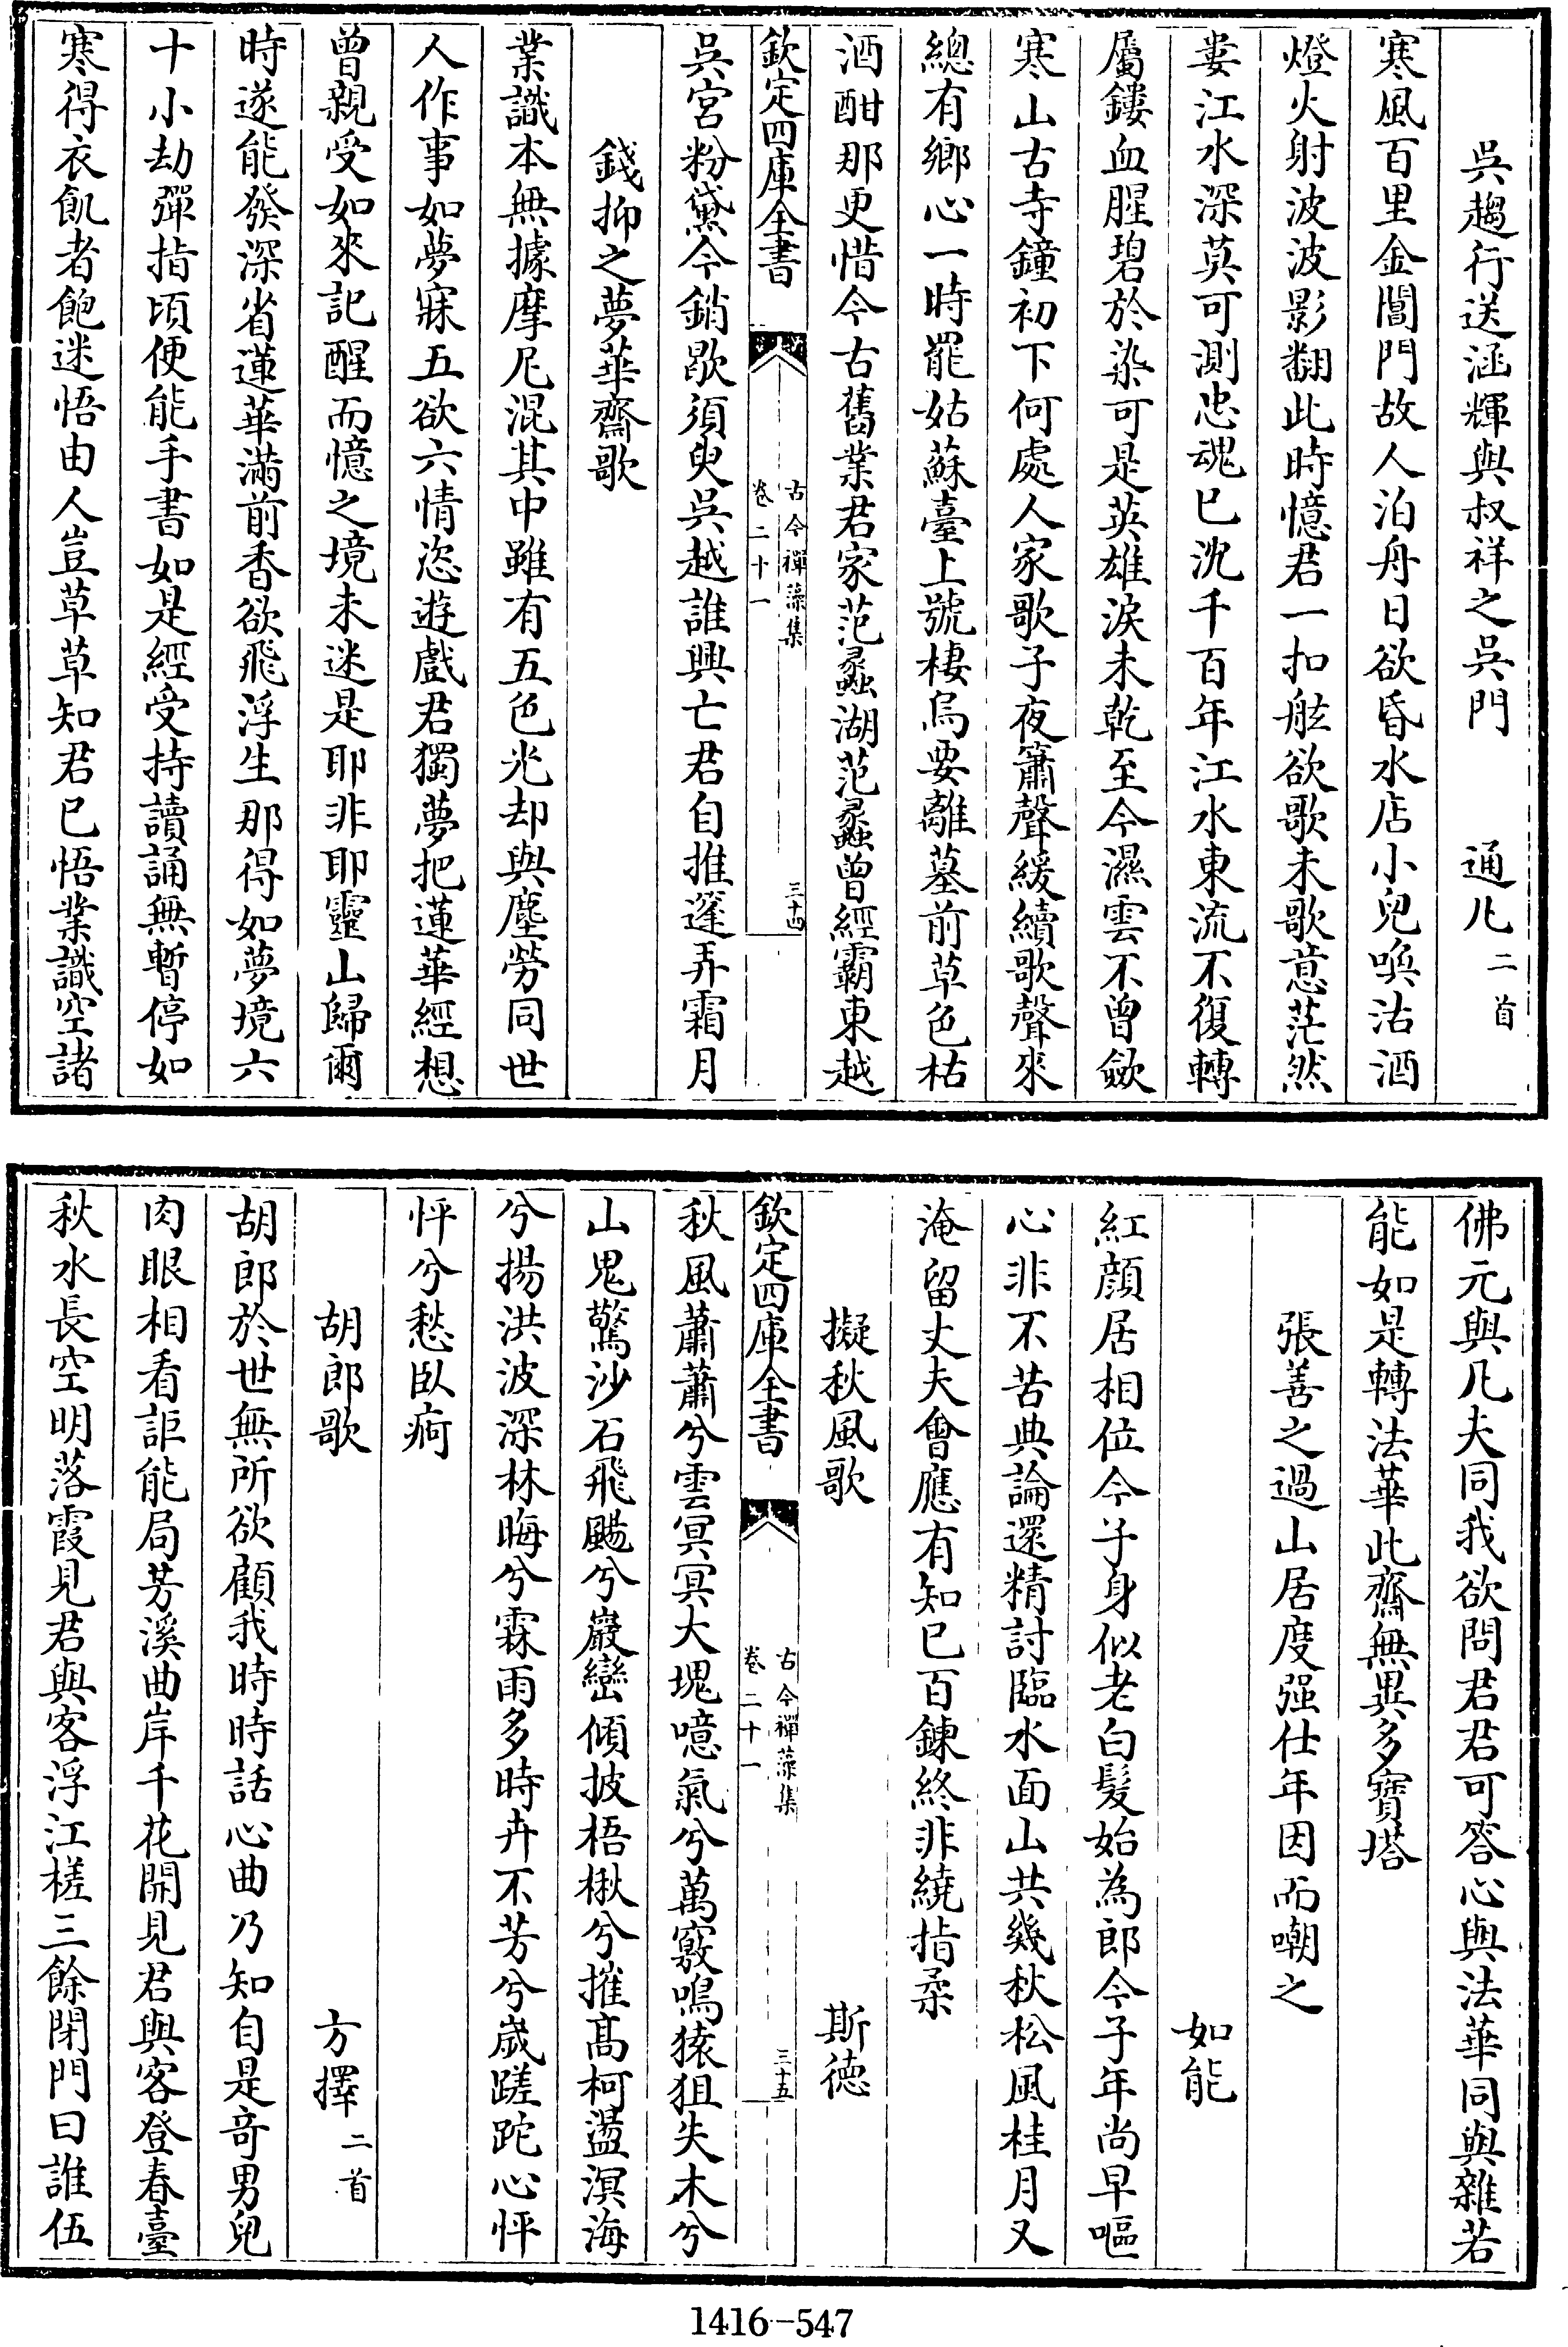 吳趨行送涵輝與叔祥之吳門　通凡二首
寒風百里金閶門故人泊舟日欲昏水店小兒喚沽酒
燈火射波波影翻此時憶君一扣舷欲歌未歌意茫然
婁江水深莫可測忠魂已沈千百年江水東流不復轉
屬鏤血腥碧於染可是英雄淚未乾至今濕雲不曾斂
寒山古寺鐘初下何處人家歌子夜簫聲緩續歌聲來
總有鄉心一時罷姑蘇臺上號棲烏要離墓前草色枯
酒酣那更惜今古舊業君家范蠡湖范蠡曾經霸東越
欽定四庫全書
古今禪藻集
卷二十一
三十四
吳宮粉黛今銷歇須臾吳越誰興亡君自推蓬弄霜月
錢抑之夢華齋歌
業識本無據摩尼混其中雖有五色光却與塵勞同世
人作事如夢寐五欲六情恣遊戲君獨夢把蓮華經想
曾親受如來記醒而憶之境未迷是耶非耶靈山歸爾
時遂能發深省蓮華滿前香欲飛浮生那得如夢境六
十小劫彈指頃便能手書如是經受持讀誦無暫停如
寒得衣飢者飽迷悟由人豈草草知君已悟業識空諸
佛元與凡夫同我欲問君君可答心與法華同與雜若
能如是轉法華此齋無異多寶塔
張善之過山居度强仕年因而嘲之
如能
紅顔居相位今子身似老白髮始為郎今子年尚早嘔
心非不苦典論還精討臨水面山共幾秋松風桂月又
淹留丈夫會應有知已百鍊終非繞指柔
擬秋風歌　斯德
欽定四庫全書
古今禪藻集
卷二十一
三十五
秋風蕭蕭兮雲冥冥大塊噫氣兮萬竅鳴猿狙失木兮
山鬼驚沙石飛颺兮巖巒傾披梧楸兮摧髙柯盪溟海
兮揚洪波深林晦兮霖雨多時卉不芳兮歲蹉跎心怦
怦兮愁臥痾
胡郎歌　方擇二首
胡郎於世無所欲顧我時時話心曲乃知自是竒男兒
肉眼相看詎能局芳溪曲岸千花開見君與客登春臺
秋水長空明落霞見君與客浮江槎三餘閉門曰誰伍
1416-547